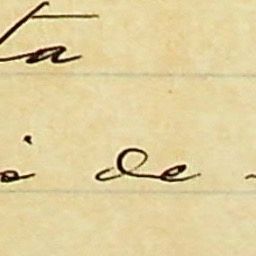 ta
de